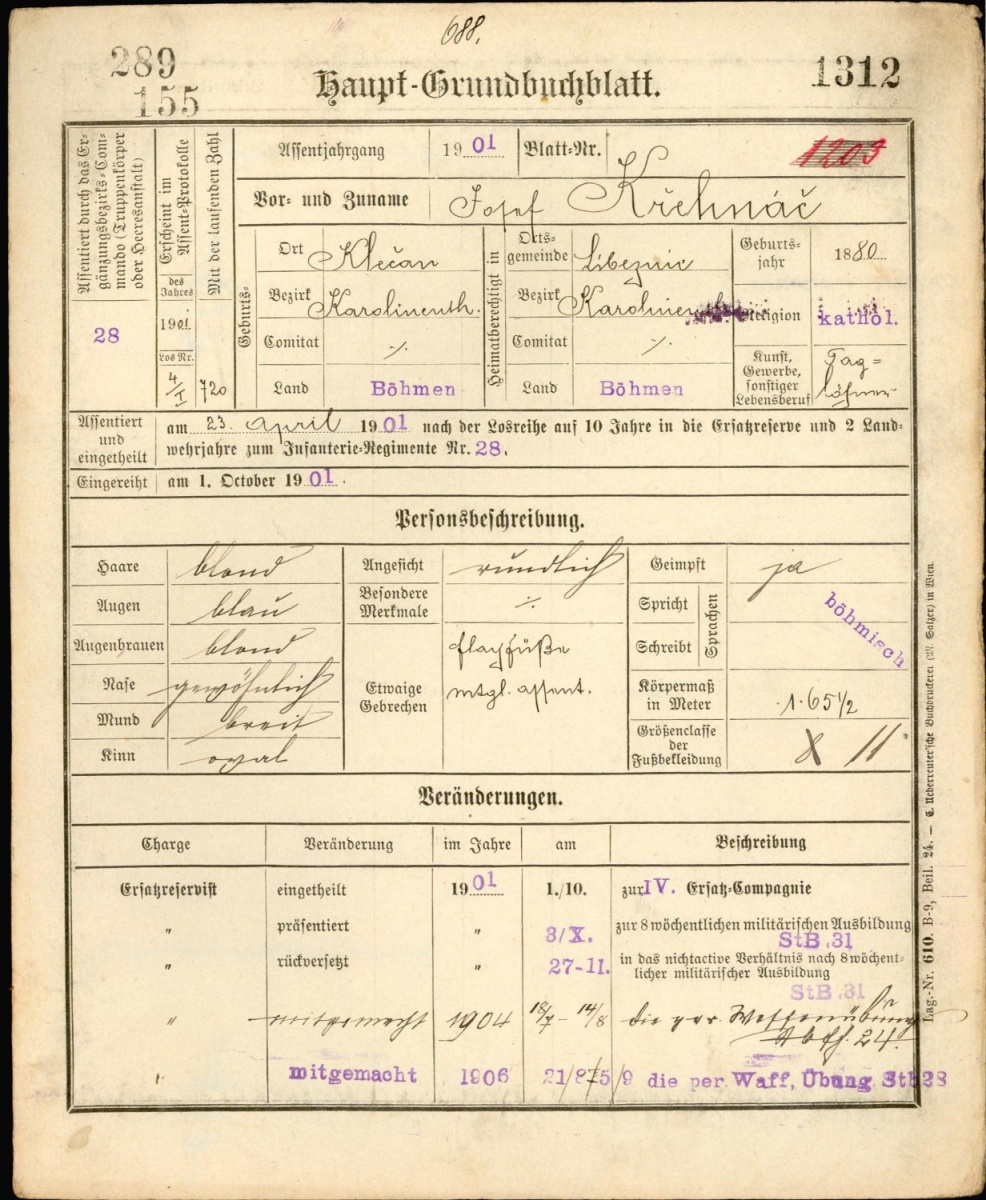 688.
289
155
1312
Haupt-Grundbuchblatt.
Assentiert durch das Ergänzungsbezirks-Commando (Truppenkörper oder Heeresanstalt)
28
Erscheint im Assent-Protokolle
des Jahres
1901.
Los Nr.
4/I
Mit der laufenden Zahl
720
Assentjahrgang 1901 Blatt-Nr. 1203
Vor- und Zuname Josef Křehnáč
Geburts-
Ort Klečan
Bezirk Karolinenth.
Comitat ./.
Land Böhmen
Heimatberechtigt in
Orts-
gemeinde Libeznic
Bezirk
Comitat ./.
Land Böhmen
Geburts-
jahr 1880
Religion kathol.
Kunst,
Gewerbe,
sonstiger
Lebensberuf
Tag=
löhner
Assentiert
und
eingetheilt
am 23. April 1901 nach der Losreihe auf 10 Jahre in die Ersatzreserve und 2 Land-
wehrjahre zum Infanterie-Regimente Nr. 28.
Eingereiht am 1. October 1901.
Personsbeschreibung.
Haare blond
Augen blau
Augenbrauen blond
Nase gewöhnlich
Mund breit
Kinn oval
Angesicht rundlich
Besondere
Merkmale ./.
Etwaige
Gebrechen
mtgl. assent.
Geimpft ja
Spricht
Schreibt
Sprachen
böhmisch
Körpermaß
in Meter 1·65½
Größenclasse
der
Fußbekleidung 8 11
Veränderungen.
Charge Veränderung im Jahre am Beschreibung
Ersatzreservist eingetheilt 1901 1./10. zur IV. Ersatz-Compagnie
" präsentiert " 3/X. zur 8 wöchentlichen militärischen Ausbildung
StB.31
" rückversetzt " 27-11. in das nichtactive Verhältnis nach 8 wöchent-
licher militärischer Ausbildung
StB.31
" mitgemacht 1904 18/7 – 14/8 die per. Waffenübung
24.
" mitgemacht 1906 21/8 5/9 die per. Waff, Übung StB 28
Lag.-Nr. 610. B-9, Beil. 24. — C. Ueberreuter'sche Buchdruckerei (M. Salzer) in Wien.